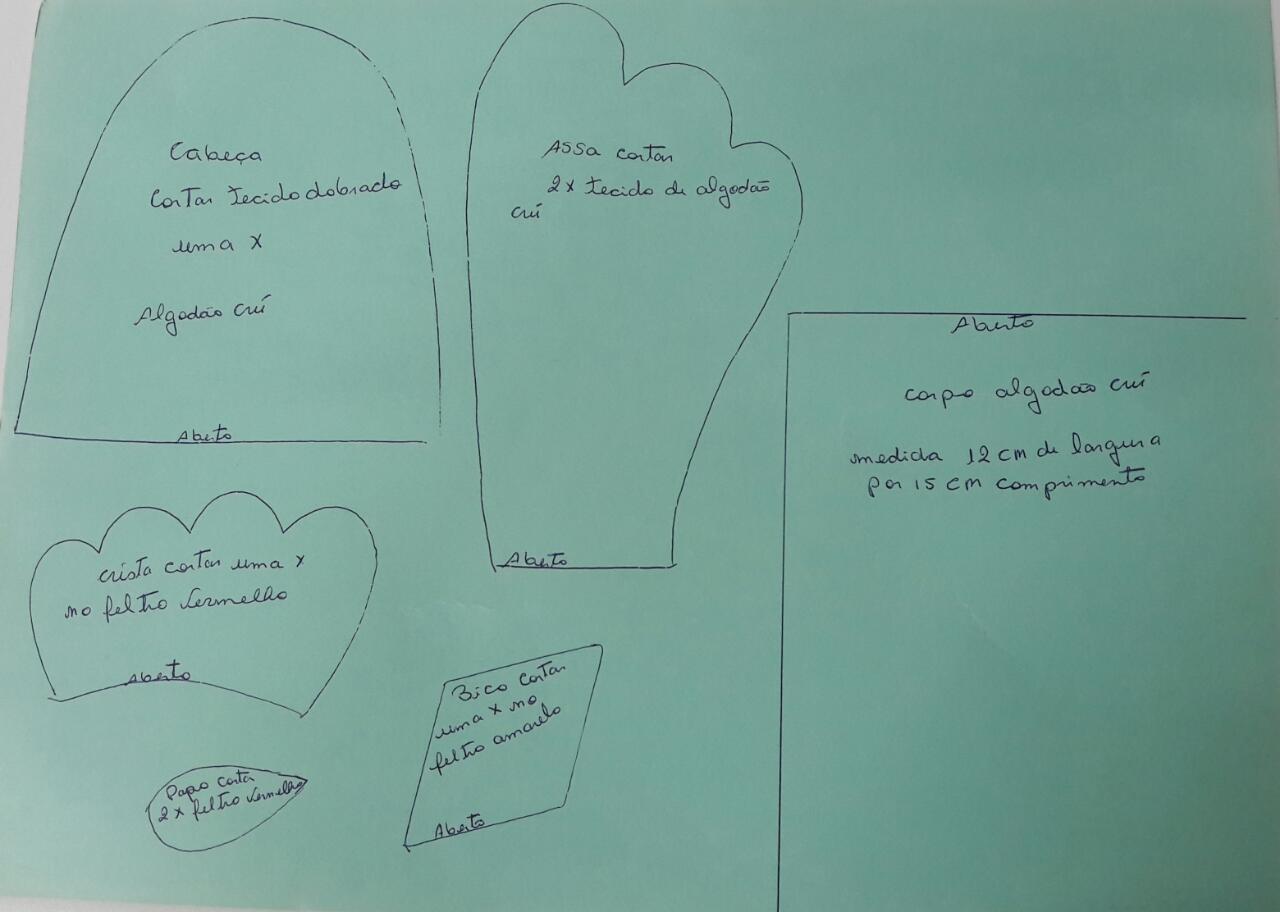 Cabeça
Cortar tecido dobrado
uma x
Algodão crú
Aberto
Assa cortar
2x tecido de algodão
crú
Aberto
Aberto
corpo algodão crú
medida 12 cm de largura
por 15 cm comprimento
crista cortar uma x
no feltro vermelho
Aberto
Bico cortar
uma x no
feltro amarelo
Aberto
Papo corta
2x feltro vermelho